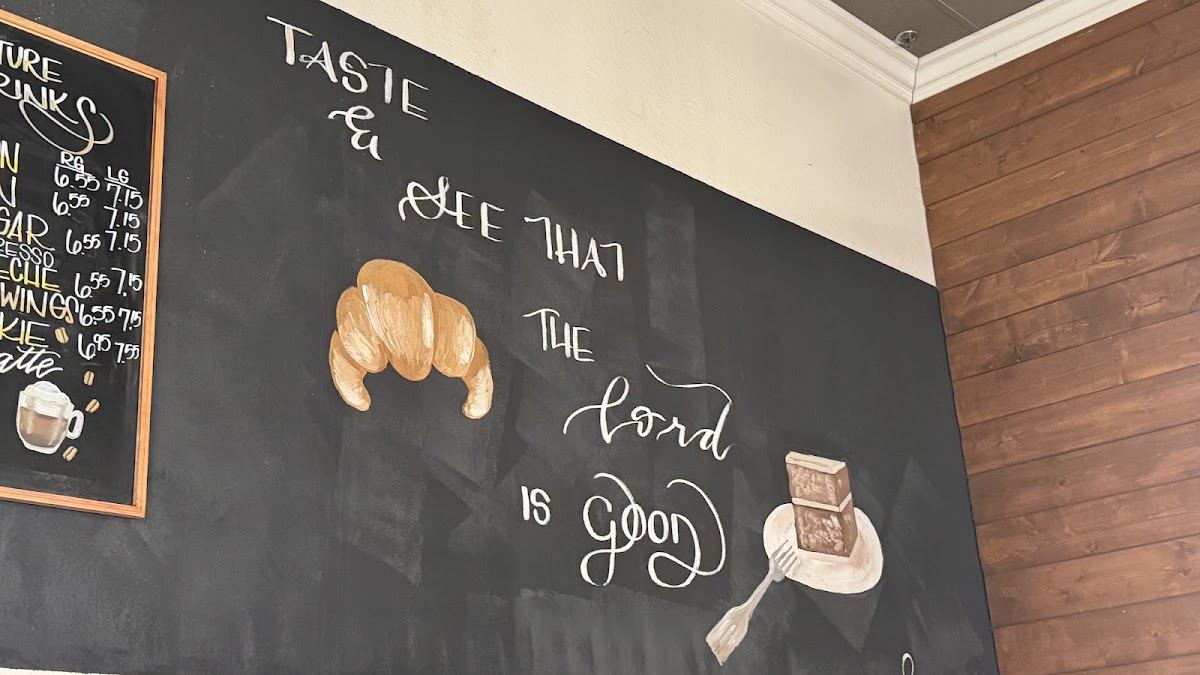 TASTE
&
SEE THAT
THE
Lord
IS GOOD
RG LG
6.55 7.15
6.55 7.15
6.55 7.15
6.55 7.15
WINGS 6.55 7.15
6.95 7.55